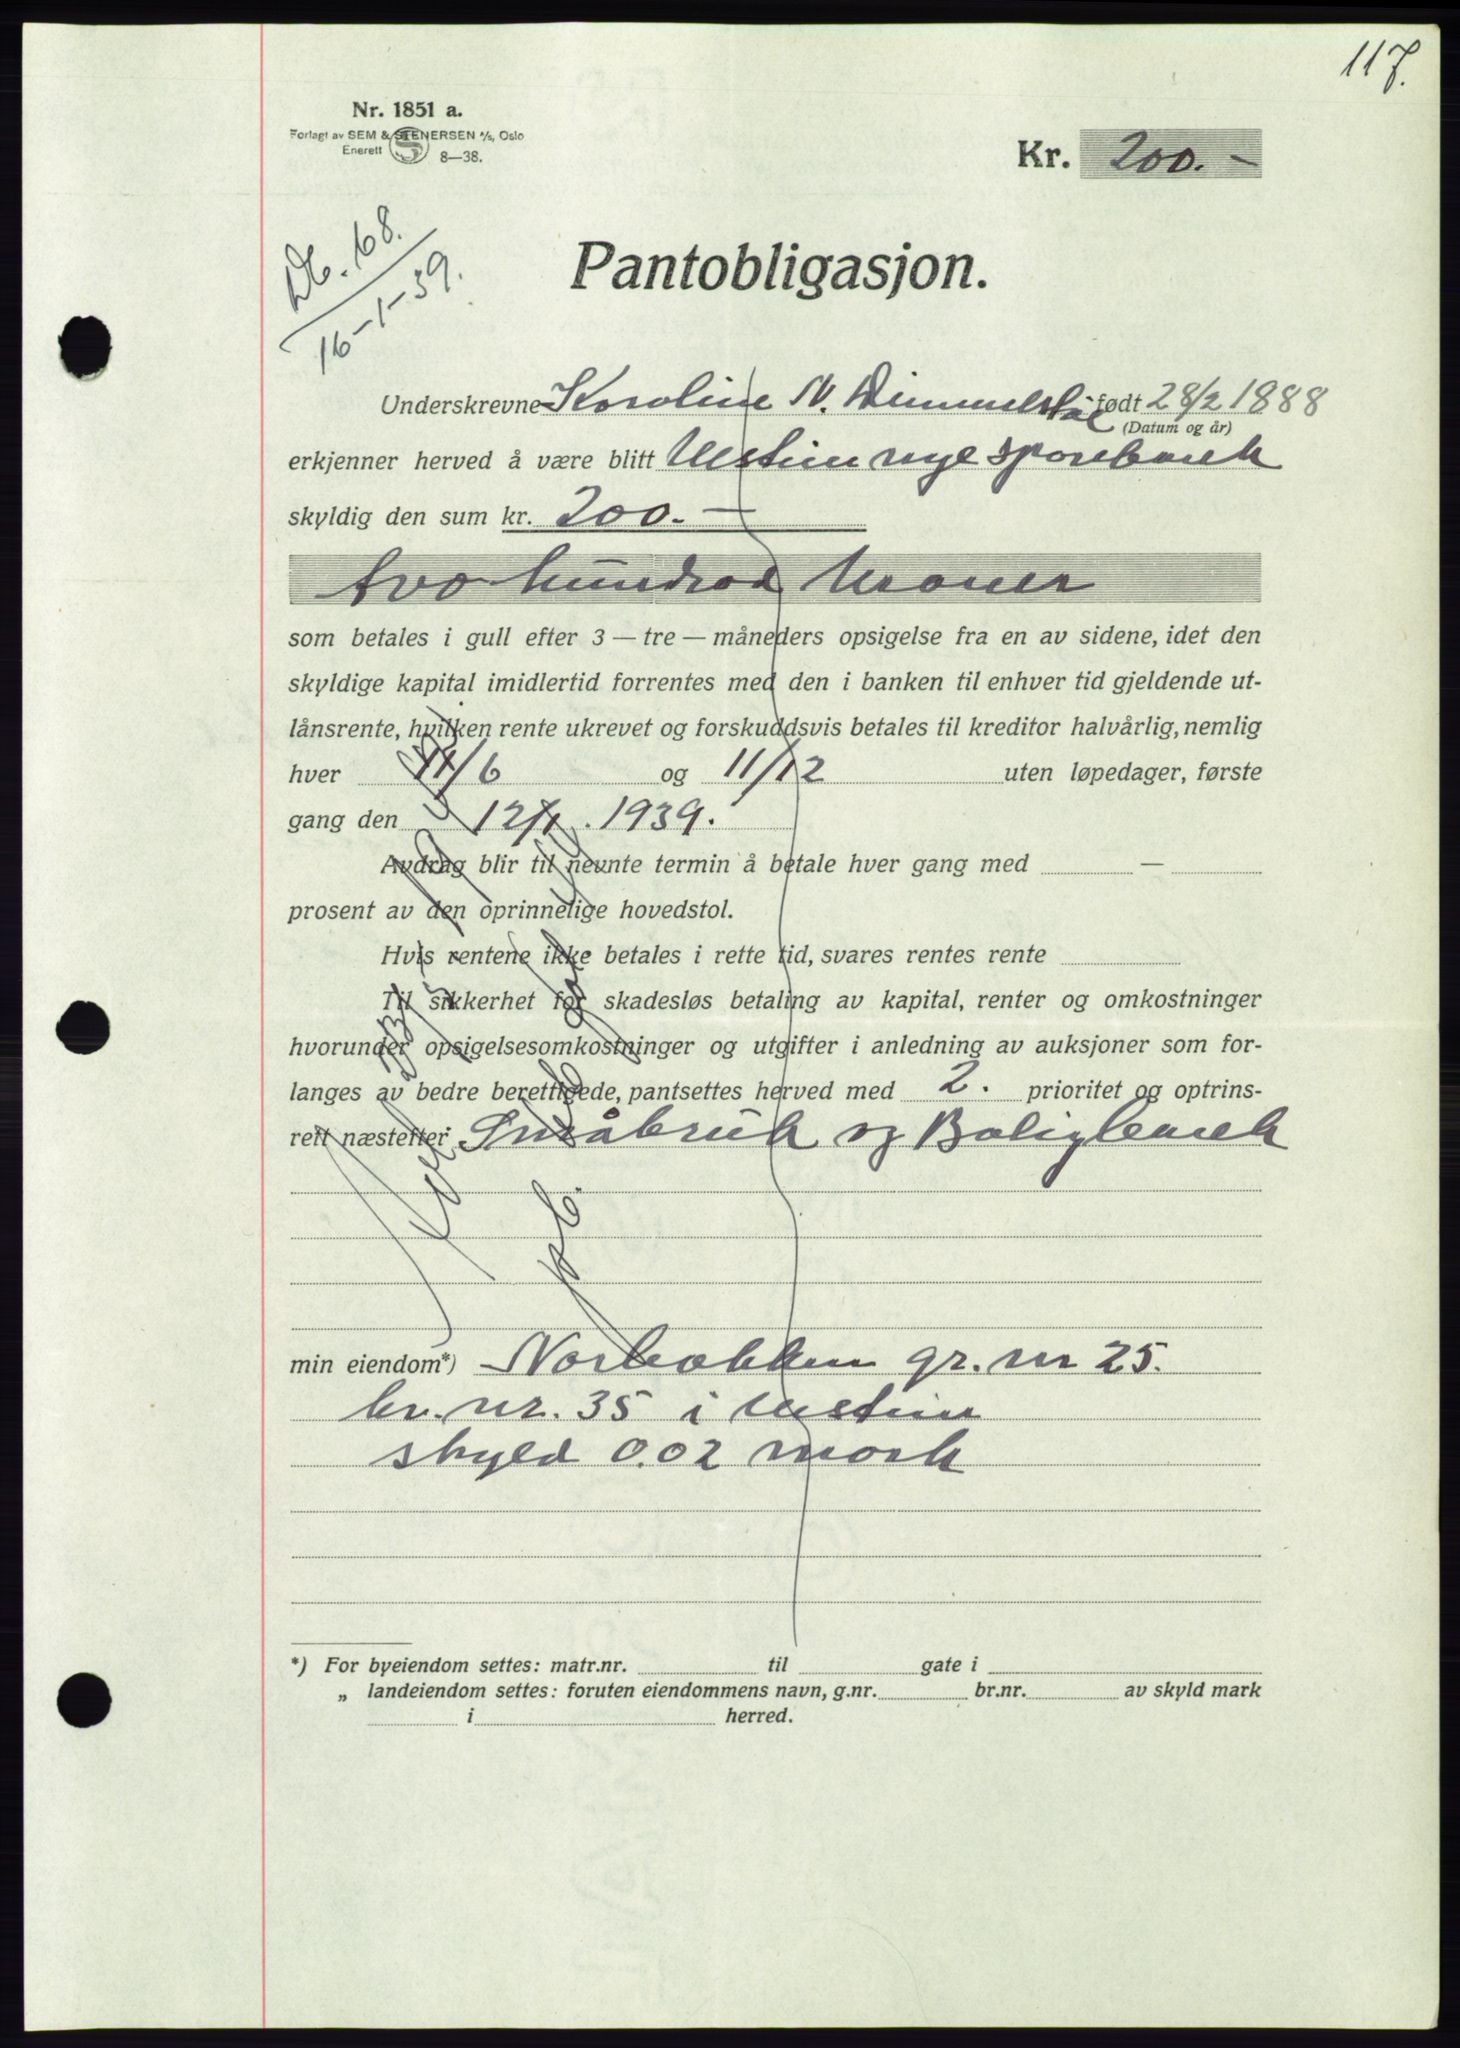 117.
Nr. 1851 a.
Forlagt av SEM & STENERSEN A/S, Oslo
Enerett 8—38.
Kr. 200.-
Db. 68.
16-1-39.
Pantobligasjon.
Underskrevne Karoline N. Dimmelsvik født 28/2 1888
(Datum og år)
erkjenner herved å være blitt Ulstein nye sparebank
skyldig den sum kr. 200.-
tvo hundrad kroner
som betales i gull efter 3 — tre — måneders opsigelse fra en av sidene, idet den
skyldige kapital imidlertid forrentes med den i banken til enhver tid gjeldende ut-
lånsrente, hvilken rente ukrevet og forskuddsvis betales til kreditor halvårlig, nemlig
hver 11/6 og 11/12 uten løpedager, første
gang den 12/1. 1939.
Avdrag blir til nevnte termin å betale hver gang med —
prosent av den oprinnelige hovedstol.
Hvis rentene ikke betales i rette tid, svares rentes rente
Til sikkerhet for skadesløs betaling av kapital, renter og omkostninger
hvorunder opsigelsesomkostninger og utgifter i anledning av auksjoner som for-
langes av bedre berettigede, pantsettes herved med 2. prioritet og optrins-
rett næstefter Småbruk og Boligbank
min eiendom*) Norbakken gr. nr 25.
br. nr. 35 i Ulstein
skyld 0.02 mark
*) For byeiendom settes: matr.nr. til gate i
„ landeiendom settes: foruten eiendommens navn, g.nr. br.nr. av skyld mark
i herred.